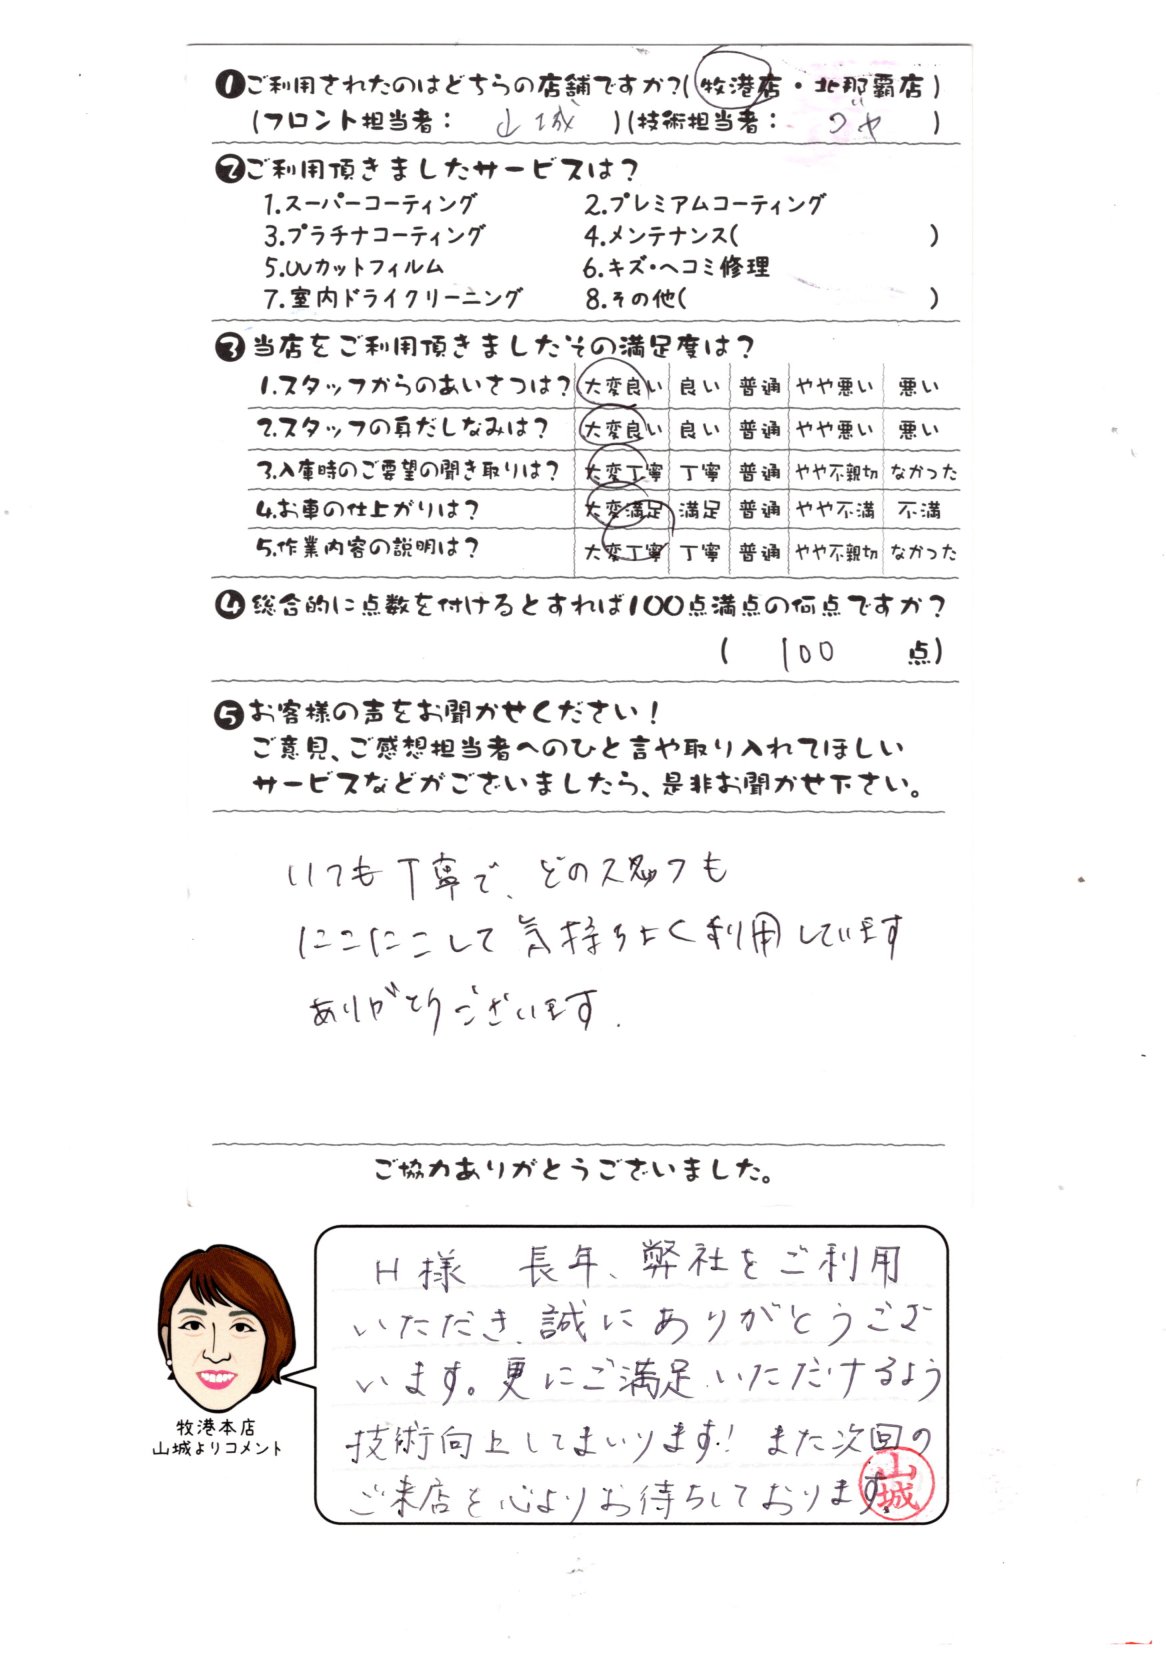 ❶ご利用されたのはどちらの店舗ですか?(牧港店・北那覇店)
(フロント担当者: 山城 )(技術担当者: )
❷ご利用頂きましたサービスは?
1.スーパーコーティング 2.プレミアムコーティング
3.プラチナコーティング 4.メンテナンス( )
5.UVカットフィルム 6.キズ・ヘコミ修理
7.室内ドライクリーニング 8.その他( )
❸当店をご利用頂きましたその満足度は?
1.スタッフからのあいさつは? 大変良い 良い 普通 やや悪い 悪い
2.スタッフの身だしなみは? 大変良い 良い 普通 やや悪い 悪い
3.入庫時のご要望の聞き取りは? 大変丁寧 丁寧 普通 やや不親切 なかった
4.お車の仕上がりは? 大変満足 満足 普通 やや不満 不満
5.作業内容の説明は? 大変丁寧 丁寧 普通 やや不親切 なかった
❹総合的に点数を付けるとすれば100点満点の何点ですか?
( 100 点)
❺お客様の声をお聞かせください!
ご意見、ご感想担当者へのひと言や取り入れてほしい
サービスなどがございましたら、是非お聞かせ下さい。
いつも丁寧で、どのスタッフも
にこにこして気持ちよく利用しています
ありがとうございます.
ご協力ありがとうございました。
H様 長年、弊社をご利用
いただき、誠にありがとうござ
います。更にご満足いただけるよう
技術向上してまいります! また次回の
ご来店を心よりお待ちしております。
山城
牧港本店
山城よりコメント